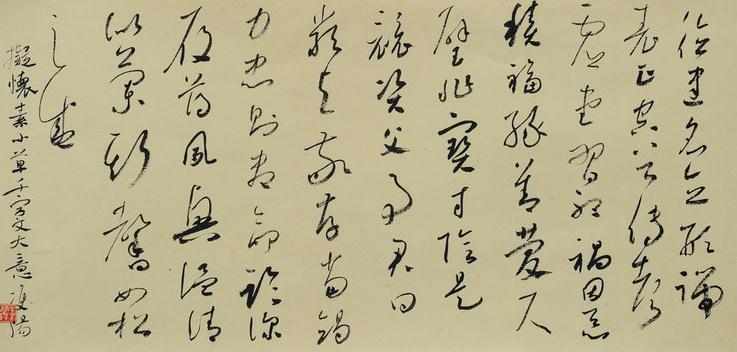 德建名立形端
表正空谷傳聲
虛堂習聽禍因惡
積福緣善慶尺
璧非寶寸陰是
競資父事君曰
嚴與敬孝當竭
力忠則盡命臨深
履薄夙興溫凊
似蘭斯馨如松
之盛
擬懷素小草千字文大意